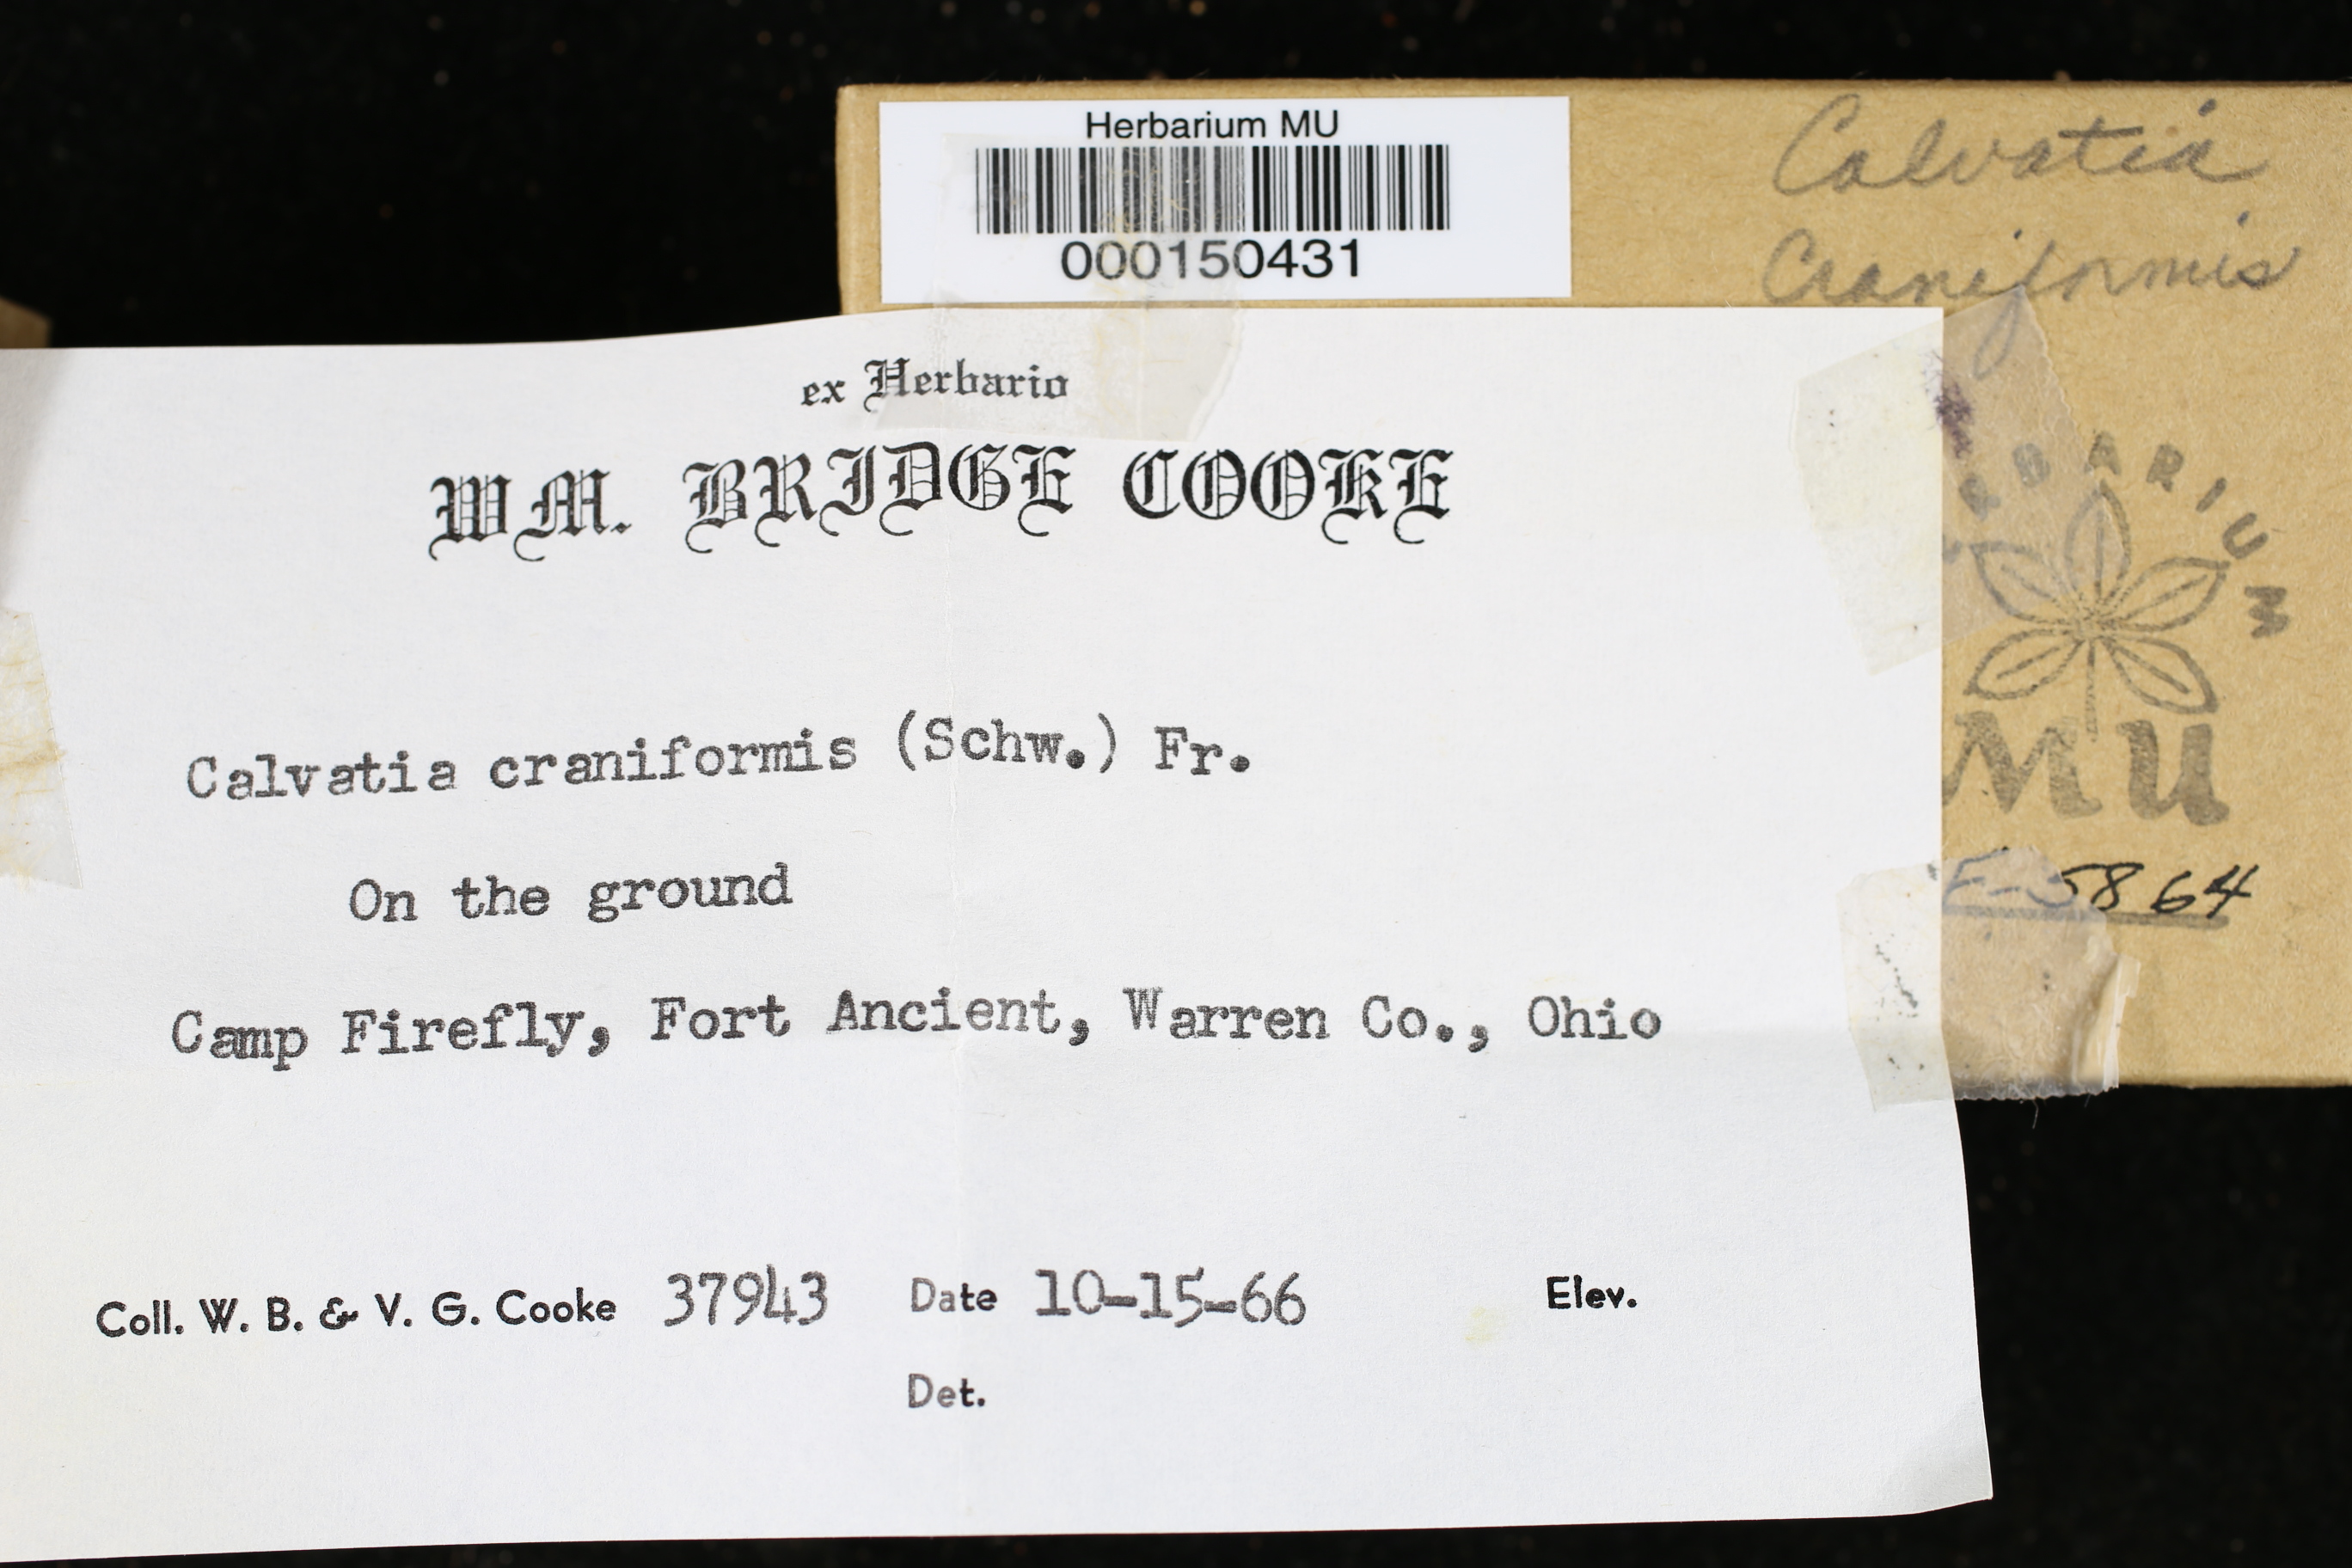 Herbarium MU
000150431
Calvatia
Craniformis
ex Herbario
WM. BRIDGE COOKE
HERBARIUM
MU
F-5864
Calvatia craniformis (Schw.) Fr.
On the ground
Camp Firefly, Fort Ancient, Warren Co., Ohio
Coll. W. B. & V. G. Cooke 37943 Date 10-15-66 Elev.
Det.